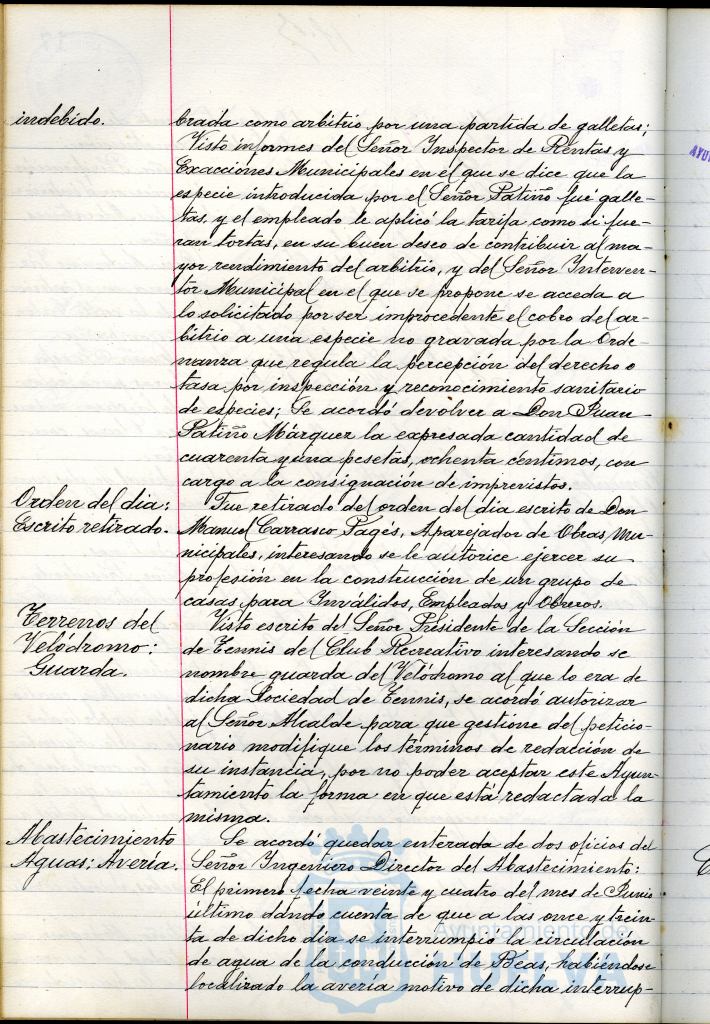 indebido.
brada como arbitrio por una partida de galletas;
Visto informes del Señor Inspector de Rentas y
Exacciones Municipales en el que se dice que la
especie introducida por el Señor Patiño fué galle-
tas, y el empleado le aplicó la tarifa como si fue-
ran tortas, en su buen deseo de contribuir al ma-
yor rendimiento del arbitrio, y del Señor Interven-
tor Municipal en el que se propone se acceda a
lo solicitado por ser improcedente el cobro del ar-
bitrio a una especie no gravada por la Orde-
nanza que regula la percepción del derecho o
tasa por inspección y reconocimiento sanitario
de especies; Se acordó devolver a Don Juan
Patiño Márquez la expresada cantidad de
cuarenta y una pesetas, ochenta céntimos, con
cargo a la consignación de imprevistos.
Orden del dia:
Escrito retirado.
Fue retirado del orden del dia escrito de Don
Manuel Carrasco Pagés, Aparejador de Obras Mu-
nicipales, interesando se le autorice ejercer su
profesión en la construcción de un grupo de
casas para Inválidos, Empleados y Obreros.
Terrenos del
Velódromo:
Guarda.
Visto escrito del Señor Presidente de la Sección
de Tennis del Club Recreativo interesando se
nombre guarda del Velódromo al que lo era de
dicha Sociedad de Tennis, se acordó autorizar
al Señor Alcalde para que gestione del peticio-
nario modifique los términos de redacción de
su instancia, por no poder aceptar este Ayun-
tamiento la forma en que está redactada la
misma.
Abastecimiento
Aguas: Avería.
Se acordó quedar enterada de dos oficios del
Señor Ingeniero Director del Abastecimiento:
El primero fecha veinte y cuatro del mes de Junio
último dando cuenta de que a las once y trein-
ta de dicho dia se interrumpió la circulación
de agua de la conducción de Beas, habiendose
localizado la avería motivo de dicha interrup-
Ayuntamiento de
HUELVA
AYU